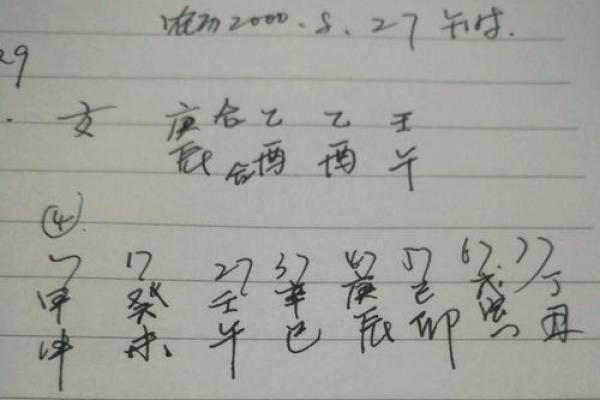 2000.8.27 午时.
29
. 女 庚 合 乙 乙 壬
辰 合 酉 酉 午
④.
7 17 27 37 47 57 67 77
甲 癸 壬 辛 庚 己 戊 丁
申 未 午 巳 辰 卯 寅 丑